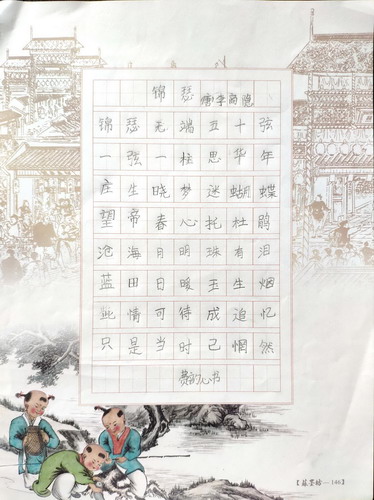 锦瑟 唐李商隐
锦瑟无端五十弦
一弦一柱思华年
庄生晓梦迷蝴蝶
望帝春心托杜鹃
沧海月明珠有泪
蓝田日暖玉生烟
此情可待成追忆
只是当时已惘然
心书